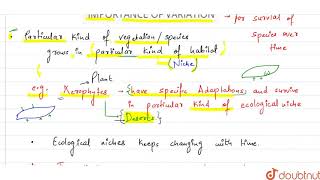 IMPORTANCE OF VARIATION → for survial of
• Particular kind of vegetation/species species over
grows in (particular kind of habitat) time
(Niche)
Plant
e.g. Xerophytes → (have specific Adaptations) and survive
in particular kind of ecological niche
↳ {Deserts}
• Ecological niches keeps changing with time.
doubtnut